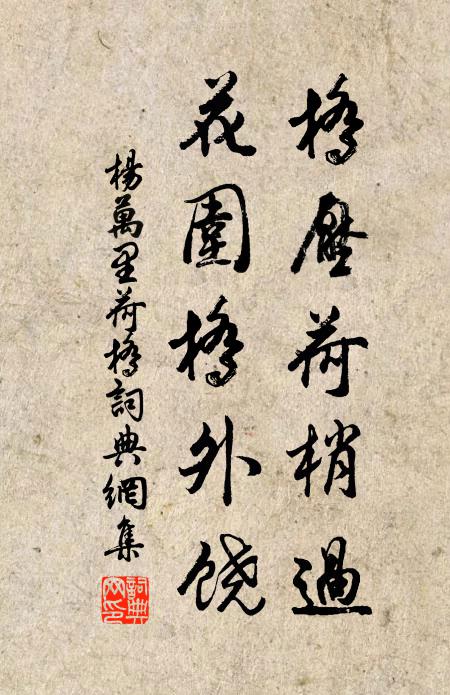 橋壓荷梢過
花圍橋外饒
楊萬里荷橋詞典網集
詞典网印